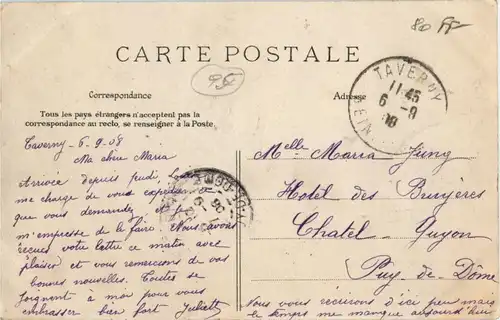 80 FF
CARTE POSTALE
95
Correspondance
Adresse
Tous les pays étrangers n'acceptent pas la
correspondance au recto, se renseigner à la Poste.
TAVERNY
11-45
6-9
08
Taverny - 6.9.08
Ma chère Maria
Arrivée depuis jeudi,
me charge de vous expédier ce
que vous demandez
m'empresse de le faire. Nous avons
reçues votre lettre ce matin avec
plaisir et vous remercions de vos
bonnes nouvelles. Toutes se
joignent à moi pour vous
embrasser bien fort Juliette
Melle Maria Jung
Hotel des Bruyeres
Chatel-Guyon
Puy-de-Dôme
Nous vous écrirons d'ici peu mais
le temps me manque aujourd'hui